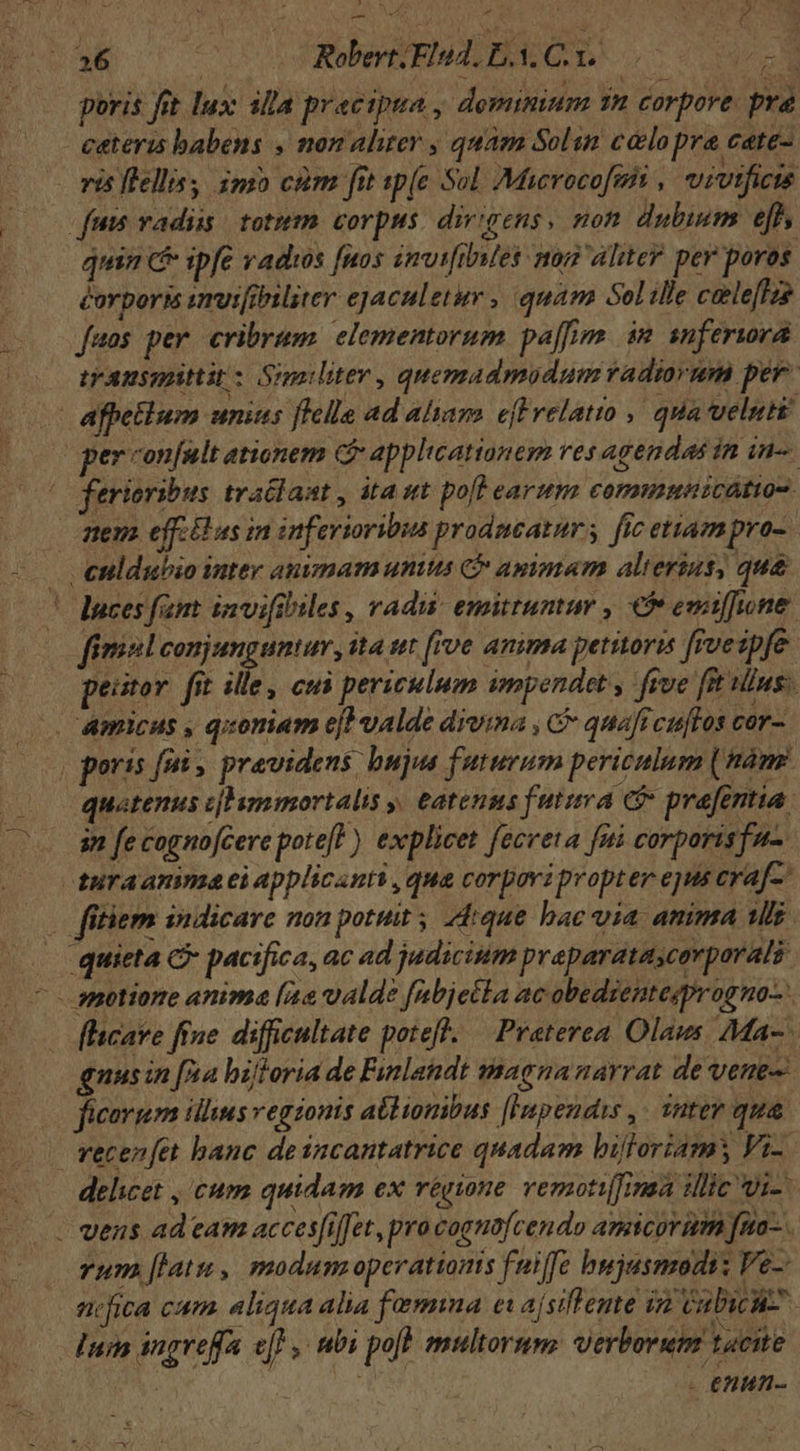 26 Robert. Flud. L. 1. C. 1.
poris ſit lux illa præcipua, dominium in corpore præ
cæteris habens, non aliter, quàm Sol in cælo præ cæte-
ris ſtellis, imò cùm ſit ipſe Sol Microcoſmi, vivificis
ſuis radiis totum corpus dirigens, non dubium eſt,
quin & ipſe radios ſuos inviſibiles non aliter per poros
corporis inviſibiliter ejaculetur, quàm Sol ille cæleſtis
ſuos per cribrum elementorum paſſim in inferiora
transmittit: Similiter, quemadmodum radiorum per
aſpectum unius ſtellæ ad aliam eſt relatio, qua veluti
per conſultationem & applicationem res agendas in in-
ferioribus tractant, ita ut poſt earum communicatio-
nem effectus in inferioribus producatur; ſic etiam pro-
culdubio inter animam unius & animam alterius, quæ
luces ſunt inviſibiles, radii emittuntur, & emiſſione
ſimul conjunguntur, ita ut ſive anima petitoris ſive ipſe
petitor ſit ille, cui periculum impendet, ſive ſit illius
amicus, quoniam eſt valde divina, & quaſi cuſtos cor-
poris ſui, prævidens hujus futurum periculum (nam
quatenus eſt immortalis, eatenus futura & præſentia
in ſe cognoſcere poteſt) explicet ſecreta ſui corporis fu-
tura animæ ei applicanti, quæ corpori propter ejus craſ-
ſitiem indicare non potuit; Atque hac via anima illi
quieta & pacifica, ac ad judicium præparata, corporali
motione animæ ſuæ valdè ſubjecta ac obediente, progno-
ſticare ſine difficultate poteſt. Præterea Olaus Ma-
gnus in ſua hiſtoria de Finlandt magna narrat de vene-
ficorum illius regionis actionibus ſtupendis, inter quæ
recenſet hanc de incantatrice quadam hiſtoriam; Vi-
delicet, cum quidam ex regione remotiſſimâ illic vi-
vens ad eam accesſiſſet, pro cognoſcendo amicorum ſuo-
rum ſtatu, modum operationis fuiſſe hujusmodi: Ve-
nefica cum aliqua alia fœmina ei aſsiſtente in cubicu-
lum ingreſſa eſt, ubi poſt multorum verborum tacite
enun-